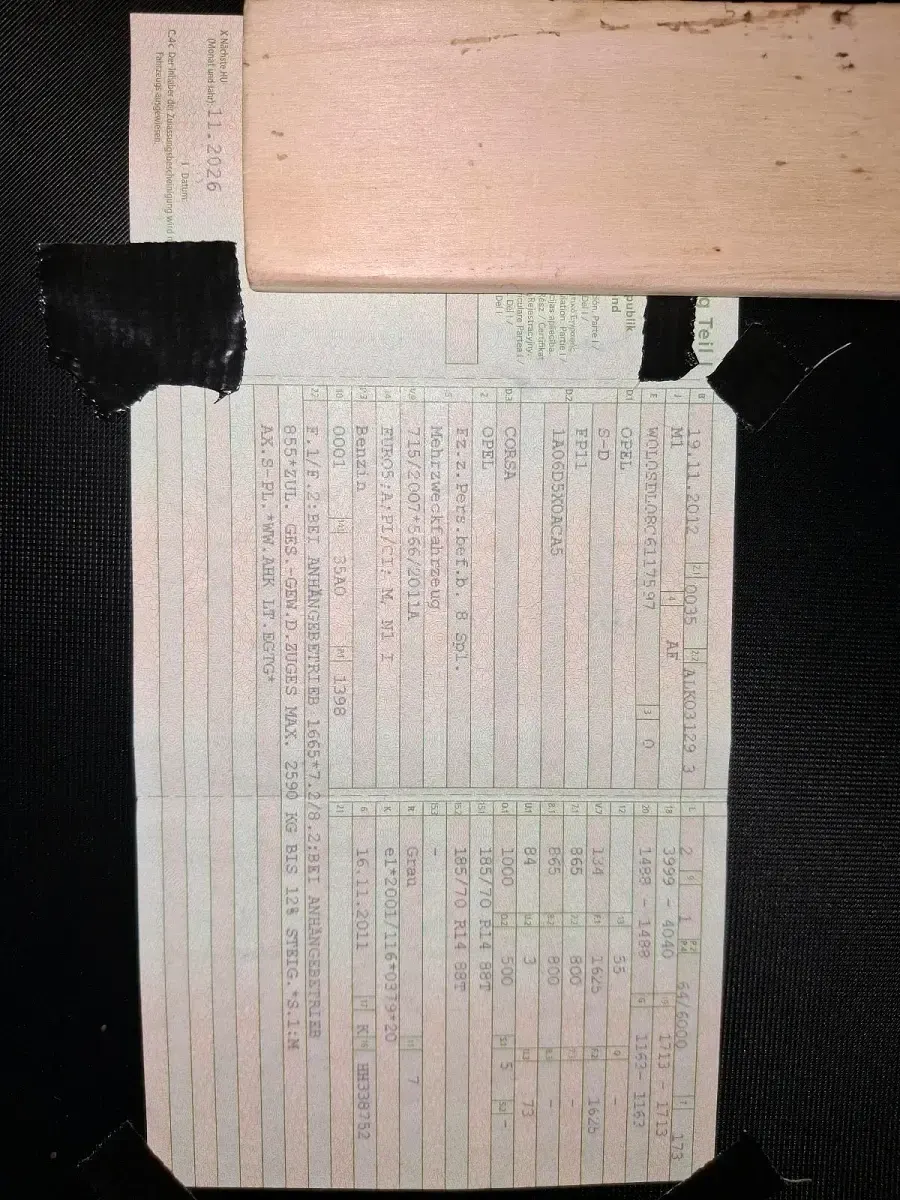 g Teil I
publik
nd
X Nächste HU
(Monat und Jahr): 11.2026
I Datum:
C.4c Der Inhaber der Zulassungsbescheinigung wird
Fahrzeugs ausgewiesen.
B 19.11.2012 2.1 0035 2.2 ALK03129 3
J M1 4 AF
E W0L0SDL08C6117597 3 0
D.1 OPEL
S-D
D.2 FP11
1A06D5X0ACA5
D.3 CORSA
2 OPEL
5 Fz.z.Pers.bef.b. 8 Spl.
Mehrzweckfahrzeug
V.9 715/2007*566/2011A
14 EURO5;A;PI/CI; M, N1 I
P.3 Benzin
10 0001 14.1 35A0 P.1 1398
22 F.1/F.2:BEI ANHÄNGEBETRIEB 1665*7.2/8.2:BEI ANHÄNGEBETRIEB
855*ZUL. GES.-GEW.D.ZUGES MAX. 2590 KG BIS 12% STEIG.*S.1:M
AX.S-PL.*WW.AHK LT.EGTG*
L 2 9 1 P.2 P.4 64/6000 T 173
18 3999 - 4040 19 1713 - 1713
20 1488 - 1488 G 1163- 1163
12 - 13 55 Q -
V.7 134 F.1 1625 F.2 1625
7.1 865 7.2 800 7.3 -
8.1 865 8.2 800 8.3 -
U.1 84 U.2 3 U.3 73
O.1 1000 O.2 500 S.1 5 S.2 -
15.1 185/70 R14 88T
15.2 185/70 R14 88T
15.3 -
R Grau 11 7
K e1*2001/116*0379*20
6 16.11.2011 17 K 16 HH338752
21